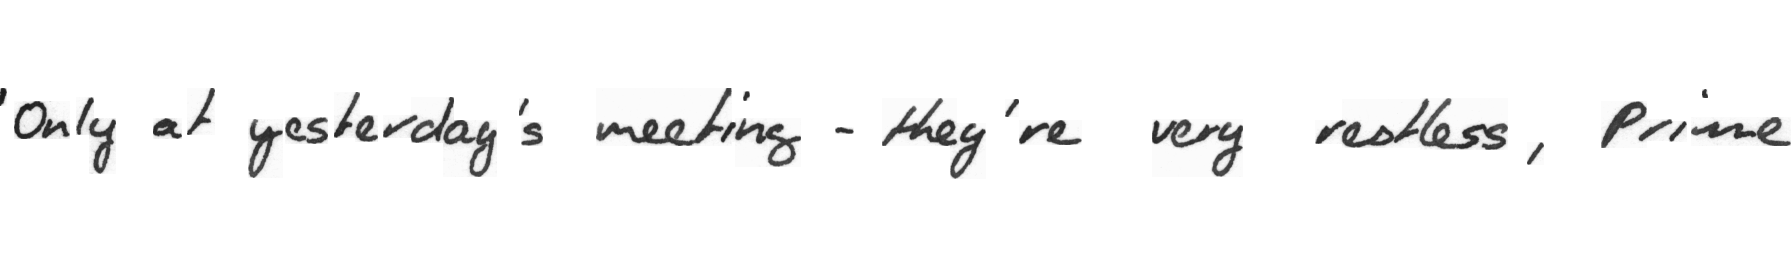 'Only at yesterday's meeting - they're very restless, Prime